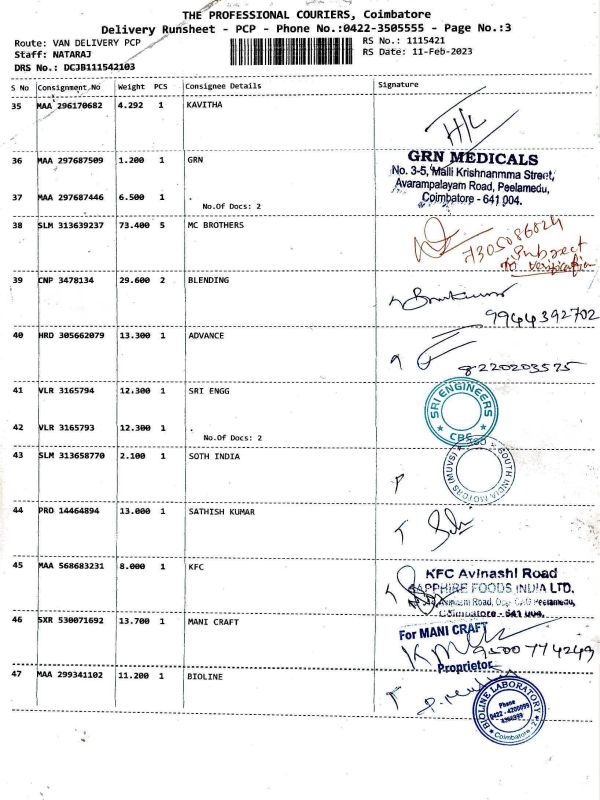 THE PROFESSIONAL COURIERS, Coimbatore
Delivery Runsheet - PCP - Phone No.:0422-3505555 - Page No.:3
Route: VAN DELIVERY PCP RS No.: 1115421
Staff: NATARAJ RS Date: 11-Feb-2023
DRS No.: DCJB111542103
S No Consignment No Weight PCS Consignee Details Signature
35 MAA 296170682 4.292 1 KAVITHA
H/L
36 MAA 297687509 1.200 1 GRN
GRN MEDICALS
No. 3-5, Malli Krishnanmma Street,
Avarampalayam Road, Peelamedu,
Coimbatore - 641 004.
37 MAA 297687446 6.500 1 .
No.Of Docs: 2
38 SLM 313639237 73.400 5 MC BROTHERS
7305086024
Subject
to verification
39 CNP 3478134 29.600 2 BLENDING
9944392702
40 HRD 305662079 13.300 1 ADVANCE
8220203575
41 VLR 3165794 12.300 1 SRI ENGG
SRI ENGINEERS
CBE
42 VLR 3165793 12.300 1 .
No.Of Docs: 2
43 SLM 313658770 2.100 1 SOTH INDIA
SOUTH INDIA
MOTORS (MUVS)
44 PRO 14464894 13.000 1 SATHISH KUMAR
45 MAA 568683231 8.000 1 KFC
KFC Avinashi Road
SAPPHIRE FOODS INDIA LTD.
Avinashi Road, Peelamedu,
Coimbatore - 641 004.
46 SXR 530071692 13.700 1 MANI CRAFT
For MANI CRAFT
9500774249
Proprietor
47 MAA 299341102 11.200 1 BIOLINE
BIOLINE LABORATORY
Phone
0422 - 4200099
Coimbatore